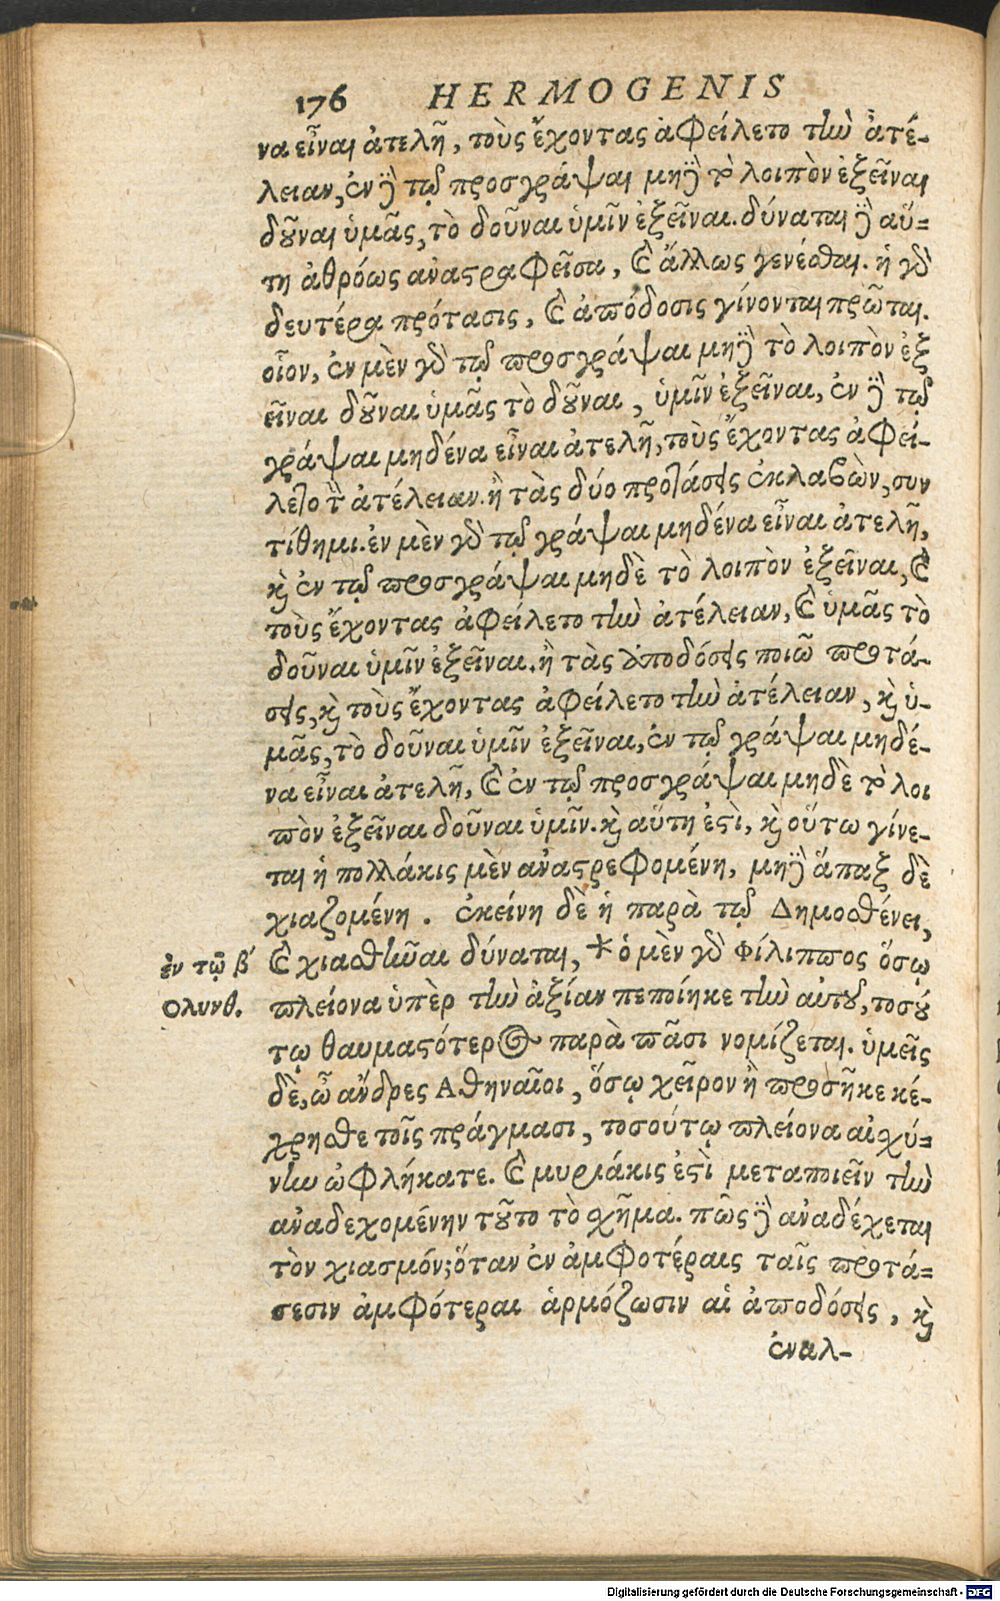 176 HERMOGENIS
να εἶναι ἀτελῆ, τοὺς ἔχοντας ἀφείλετο τὴν ἀτέ-
λειαν, ἐν δὲ τῷ προσγράψαι μηδὲ τὸ λοιπὸν ἐξεῖναι
δοῦναι ὑμᾶς, τὸ δοῦναι ὑμῖν ἐξεῖναι. δύναται δὲ αὕ-
τη ἀθρόως ἀναστραφεῖσα, καὶ ἄλλως γενέσθαι. ἡ γὰρ
δευτέρα πρότασις, καὶ ἀπόδοσις γίνονται πρῶται.
οἷον, ἐν μὲν γὰρ τῷ προσγράψαι μηδὲ τὸ λοιπὸν ἐξ
εῖναι δοῦναι ὑμᾶς τὸ δοῦναι, ὑμῖν ἐξεῖναι, ἐν δὲ τῷ
γράψαι μηδένα εἶναι ἀτελῆ, τοὺς ἔχοντας ἀφεί-
λετο τὴν ἀτέλειαν. ἢ τὰς δύο προτάσεις ἐκλαβὼν, συν
τίθημι. ἐν μὲν γὰρ τῷ γράψαι μηδένα εἶναι ἀτελῆ,
καὶ ἐν τῷ προσγράψαι μηδὲ τὸ λοιπὸν ἐξεῖναι, καὶ
τοὺς ἔχοντας ἀφείλετο τὴν ἀτέλειαν, καὶ ὑμᾶς τὸ
δοῦναι ὑμῖν ἐξεῖναι. ἢ τὰς ἀποδόσεις ποιῶ προτά-
σεις, καὶ τοὺς ἔχοντας ἀφείλετο τὴν ἀτέλειαν, καὶ ὑ-
μᾶς, τὸ δοῦναι ὑμῖν ἐξεῖναι, ἐν τῷ γράψαι μηδέ-
να εἶναι ἀτελῆ, καὶ ἐν τῷ προσγράψαι μηδὲ τὸ λοι
πὸν ἐξεῖναι δοῦναι ὑμῖν. καὶ αὕτη ἐστὶ, καὶ οὕτω γίνε-
ται ἡ πολλάκις μὲν ἀναστρεφομένη, μηδὲ ἅπαξ δὲ
χιαζομένη. ἐκείνη δὲ ἡ παρὰ τῷ Δημοσθένει,
ἐν τῷ β΄ καὶ χιασθῆναι δύναται, * ὁ μὲν γὰρ Φίλιππος ὅσῳ
Ολυνθ. πλείονα ὑπὲρ τὴν ἀξίαν πεποίηκε τὴν αὑτοῦ, τοσού
τῳ θαυμαστότερος παρὰ πᾶσι νομίζεται. ὑμεῖς
δὲ, ὦ ἄνδρες Αθηναῖοι, ὅσῳ χεῖρον ἢ προσῆκε κέ-
χρησθε τοῖς πράγμασι, τοσούτῳ πλείονα αἰσχύ-
νην ὠφλήκατε. καὶ μυριάκις ἐστὶ μεταποιεῖν τὴν
ἀναδεχομένην τοῦτο τὸ σχῆμα. πῶς δὲ ἀναδέχεται
τὸν χιασμόν; ὅταν ἐν ἀμφοτέραις ταῖς προτά-
σεσιν ἀμφότεραι ἁρμόζωσιν αἱ ἀποδόσεις, καὶ
ἐναλ-
Digitalisierung gefördert durch die Deutsche Forschungsgemeinschaft - DFG